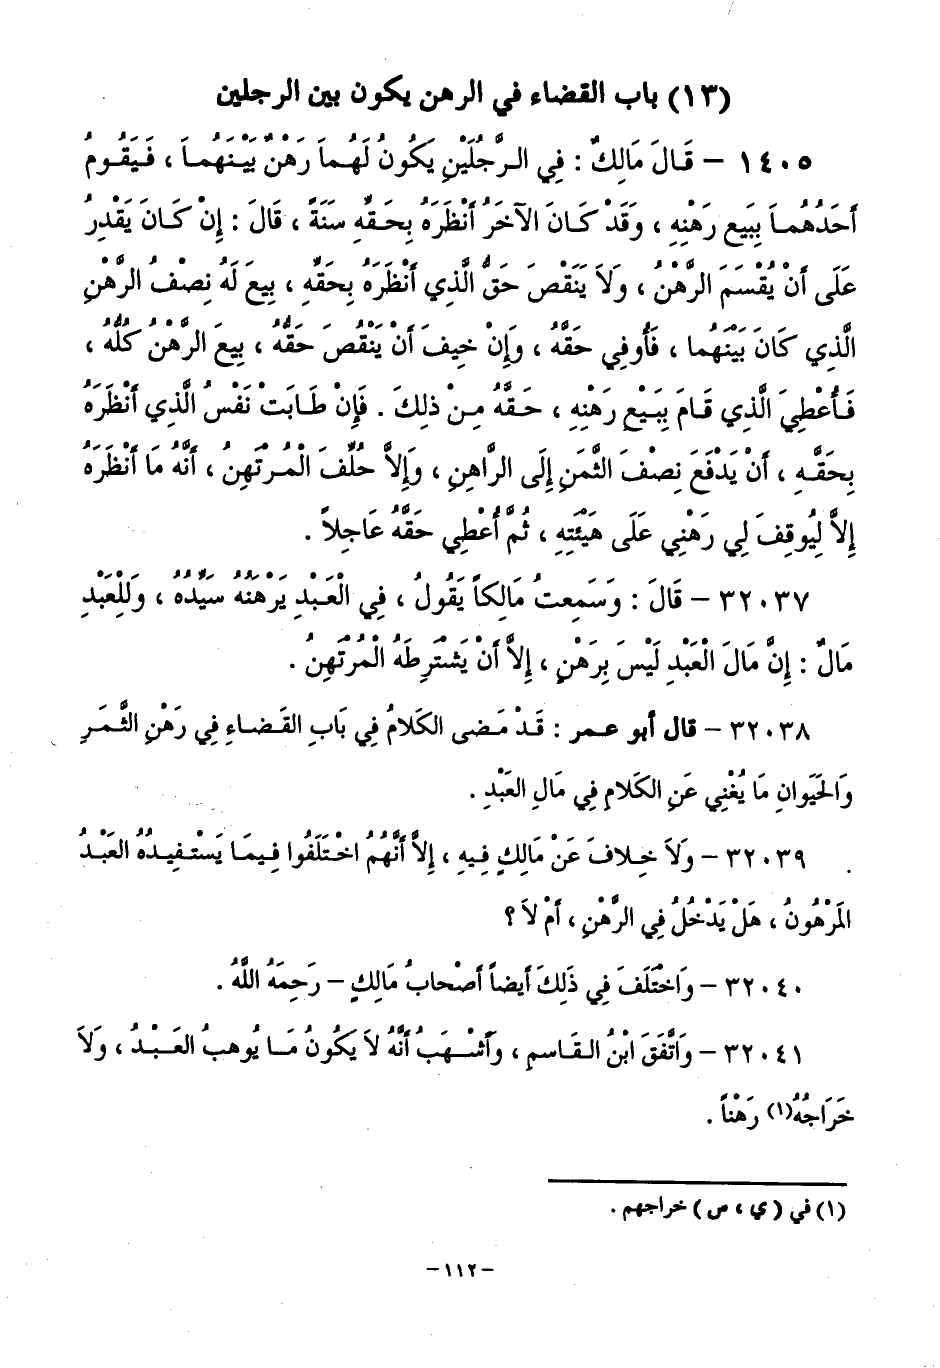 (١٣) باب القضاء في الرهن يكون بين الرجلين
١٤٠٥ – قَالَ مَالِكٌ : فِي الرَّجُلَيْنِ يَكُونُ لَهُمَا رَهْنٌ بَيْنَهُمَا ، فَيَقُومُ
أَحَدُهُمَا بِبَيعِ رَهْنِهِ ، وَقَدْ كَانَ الآخَرُ أَنْظَرَهُ بِحَقِّهِ سَنَةً ، قَالَ : إِنْ كَانَ يَقْدِرُ
عَلَى أَنْ يُقْسَمَ الرَّهْنُ ، وَلاَ يَنْقصَ حَقُّ الَّذِي أَنْظَرَهُ بِحَقِّهِ ، بِيعَ لَهُ نِصْفُ الرَّهْنِ
الَّذِي كَانَ بَيْنَهُما ، فَأُوفِي حَقَّهُ ، وَإِنْ خِيفَ أَنْ يَنْقُصَ حَقُّهُ ، بِيعَ الرَّهْنُ كُلُّهُ ،
فَأُعْطِيَ الَّذِي قَامَ بِبَيْعِ رَهْنِهِ ، حَقَّهُ مِنْ ذلِكَ . فَإِنْ طَابَتْ نَفْسُ الَّذِي أَنْظَرَهُ
بِحَقِّهِ ، أَنْ يَدْفَعَ نِصْفَ الثَّمَنِ إِلَى الرَّاهِنِ ، وَإِلاَّ حُلِّفَ الْمُرْتَهِنُ ، أَنَّهُ مَا أَنْظَرَهُ
إِلاَّ لِيُوقِفَ لِي رَهْنِي عَلَى هَيْئَتِهِ ، ثُمَّ أُعْطِي حَقَّهُ عَاجِلاً .
٣٢٠٣٧ – قَالَ : وَسَمِعتُ مَالِكاً يَقُولُ ، فِي الْعَبْدِ يَرْهَنُهُ سَيِّدُهُ ، وَلِلْعَبْدِ
مَالٌ : إِنَّ مَالَ الْعَبْدِ لَيْسَ بِرَهْنٍ ، إِلاَّ أَنْ يَشْتَرِطَهُ الْمُرْتَهِنُ .
٣٢٠٣٨ – قال أبو عمر : قَدْ مَضى الكَلامُ فِي بَابِ القَضَاءِ فِي رَهْنِ الثَّمَرِ
وَالحَيَوانِ مَا يُغْنِي عَنِ الكَلامِ فِي مَالِ العَبْدِ .
٣٢٠٣٩ – وَلاَ خِلافَ عَنْ مَالِكٍ فِيهِ ، إِلاَّ أَنَّهُمُ اخْتَلَفُوا فِيمَا يَسْتَفِيدُهُ العَبْدُ
المَرْهُونُ ، هَلْ يَدْخُلُ فِي الرَّهْنِ ، أَمْ لاَ ؟
٣٢٠٤٠ – وَاخْتَلَفَ فِي ذَلِكَ أَيضاً أَصْحابُ مَالِكٍ – رَحِمَهُ اللَّهُ .
٣٢٠٤١ – وَاتَّفَقَ ابْنُ القَاسمِ ، وَأَشْهَبُ أَنَّهُ لاَ يَكُونُ مَا يُوهبُ العَبْدُ ، وَلاَ
خَرَاجُهُ(١) رَهْناً .
(١) في ( ي ، ص ) خراجهم .
–١١٢–